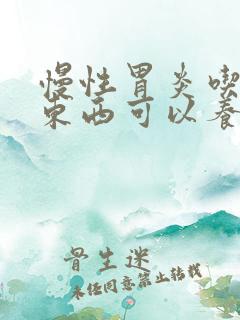 慢性胃炎喫
东西可以养
骨生迷
未经同意禁止转载